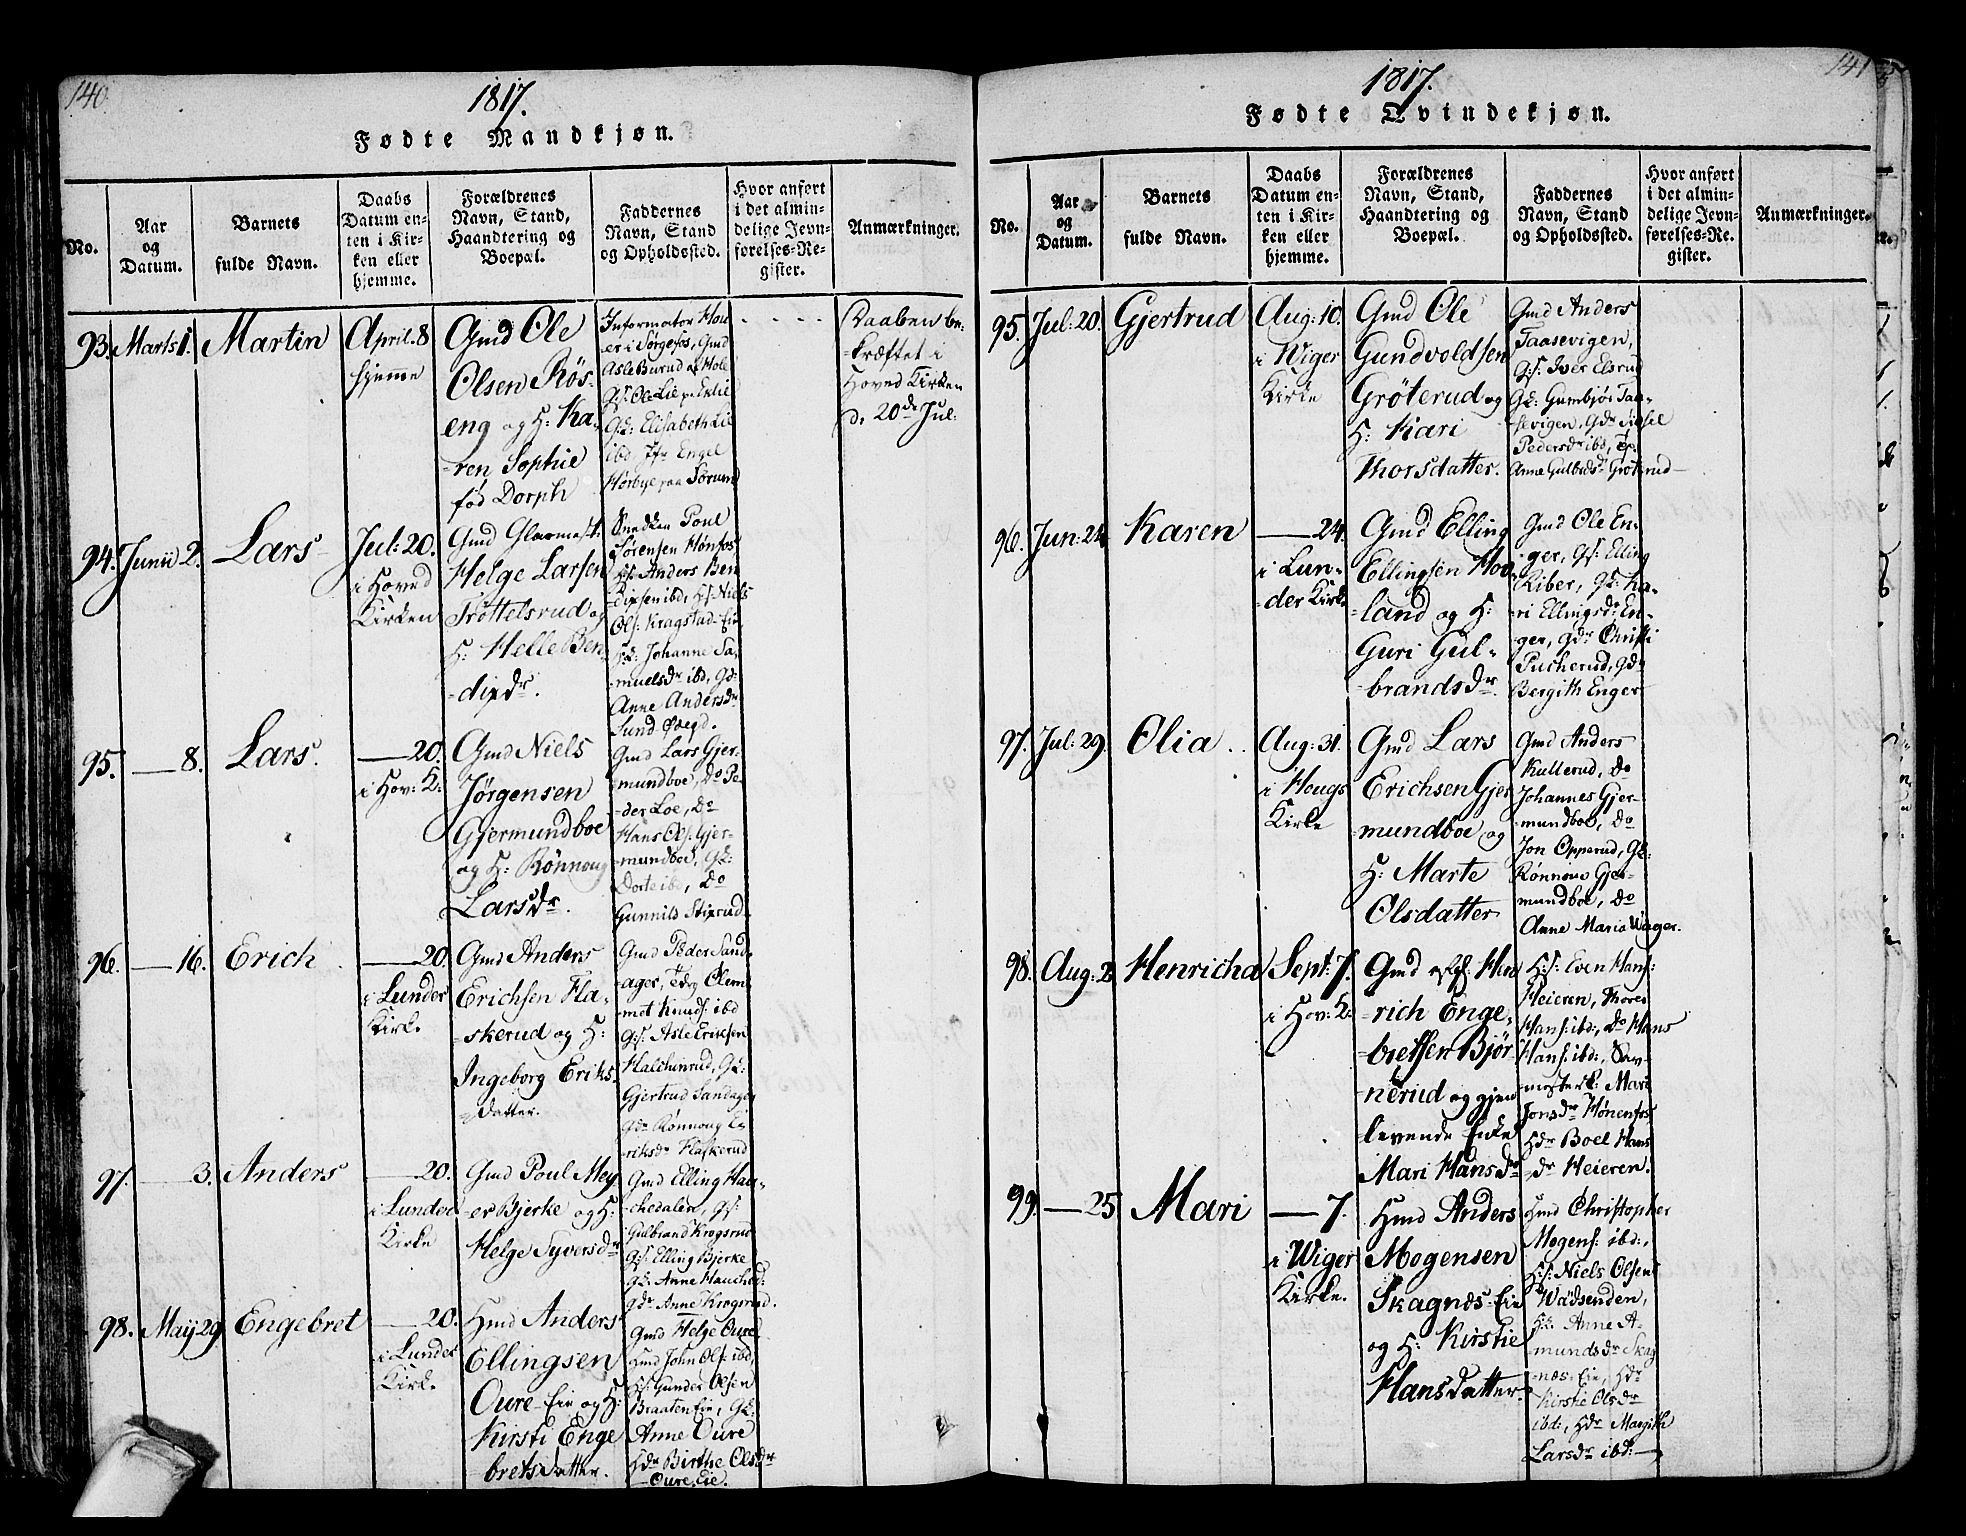 140
1817.
Fødte Mandkjøn.
No.
Aar
og
Datum.
Barnets
fulde Navn.
Daabs
Datum en-
ten i Kir-
ken eller
hjemme.
Forældrenes
Navn, Stand,
Haandtering og
Boepæl.
Faddernes
Navn, Stand
og Opholdssted.
Hvor anført
i det almin-
delige Jevn-
førelses-Re-
gister.
Anmærkninger.
93. Marts 1. Martin
April. 8
hjemme
Gmd Ole
Olsen Røs-
eng og H: Ka-
-ren Sophie
fød Dorph
Informator Hou
er i Sørgefos, Gmd
Asle Burud af Hole
G:S: Ole Lie p. Eklie
G:K: Elisabeth Lie
ibd Engel
Hørbye paa Sørum
- - - -
Daaben be-
-kræftet i
Hoved Kirken
d. 20de Jul:
94. Junii 2. Lars
Jul: 20.
i Hoved
Kirken
Gmd Glarmest.
Helge Larsen
Trøttelsrud og
H: Helle Ben
-dixdr.
Snedker Poul
Sørensen Hønfos
H:S: Anders Ben
-dixsen ibd, H:S: Niels
Ols: Kragstad-Eie
H:K: Johanne Sa-
-muelsdr ibd, Gd:
Anne Andersdr
Sund Ødegd.
95. — 8. Lars.
— 20.
i Hov: K:
Gmd Niels
Jørgensen
Gjermundboe
og H: Rønnoug
Larsdr.
Gmd Lars Gjer-
mundboe, Do Pe-
-der Loe, Do
Hans Ols: Gjer-
-mundboe, GK:
Dorte ibd, Do
Gunnild Stixrud
96. — 16. Erich
— 20.
i Lunder
Kirke
Gmd Anders
Erichsen Fla-
-skerud og H:
Ingeborg Eriks-
-datter.
Gmd Peder Sand-
ager, Clem-
met Knuds: ibd
G:S: Asle Eriksen
Halchinrud, GK:
Gjertrud Sandager
Gdr Rønnoug E-
-riksdr Flaskerud
97. — 3. Anders
— 20.
i Lunder
Kirke
Gmd Poul Mey
-er Bjerke og H:
Helge Syversdr
Gmd Elling Hau-
-chedalen, G:S:
Gulbrand Krogsrud
G:S: Elling Bjerke
G:K: Anne Hauched:
Gdr Anne Krogsrud.
98. Maÿ 29 Engebret
— 20.
i Lunder
Kirke
Hmd Anders
Ellingsen
Oure-Eie og H:
Kirsti Enge
-bretsdatter.
Gmd Helge Oure
Hmd John Ols: ibd,
H:S: Gunder Olsen
Braaten Eie, GK:
Anne Oure
Hdr Birthe Olsdr
- Oure, Eie.
141
1817.
Fødte Qvindekjøn.
No.
Aar
og
Datum.
Barnets
fulde Navn.
Daabs
Datum en-
ten i Kir-
ken eller
hjemme.
Forældrenes
Navn, Stand,
Haandtering og
Boepæl.
Faddernes
Navn, Stand
og Opholdssted.
Hvor anført
i det almin-
delige Jevn-
førelses-Re-
gister.
Anmærkninger.
95. Jul: 20. Gjertrud
Aug: 10.
i Wiger
Kirke
Gmd Ole
Gundvoldsen
Grøterud og
H: Kari
Thorsdatter.
Gmd Anders
Taasevigen,
G:S: Iver Elsrud
G:K: Gumbjør Taa-
sevigen, Gdr Sidsel
Pedersdr ibd,
Anne Gulbrdsdr Grøterud—
96. Jun: 24. Karen
— 24.
i Lun-
-der Kirke
Gmd Elling
Ellingsen Hov
-land og H:
Guri Gul-
brandsdr.
Gmd Ole En-
-ger, G:S: Elling
Riber, G:K: Ka-
-ri Ellingsdr En-
-ger, Gdr Christi
Pucherud, Gdr
Bergith Enger
97. Jul: 29. Olia
Aug: 31.
i Hougs
Kirke
Gmd Lars
Erichsen Gjer
-mundboe og
H: Marte
Olsdatter
Gmd Anders
Kullerud, Do
Johannes Gjer-
mundboe, Do
Jon Opperud, GK:
Rønnoue Gjer-
mundboe, Do
Anne Maria Wager.
98. Aug: 2. Henricha
Sept: 7.
i Hov: K:
Gmd Hen
-rich Enge-
-bretsen Bjør-
-nerud og gjen
-levende Enke
Mari Hansdr
H:S: Even Hans:
Heieren, Thores
Hans: ibd:, Do Hans
Hans: ibd:, Sav-
mesterk: Mari
Jonsdr Hønenfos,
Hdr Boel Hans
-dr Heieren.
99. — 25. Mari
— 7.
i Wiger
Kirke.
Hmd Anders
Mogensen
Skagnæs-Eie
og H: Kirstie
Hansdatter
Hmd Christopher
Mogens: ibd:,
H:S: Niels Olsen
Wadsenden,
H:K: Anne A-
mundsdr Skag
-næs-Eie, Hdr
Kirstie Olsdr
ibd:, Hdr Margith
Larsdr ibd:—